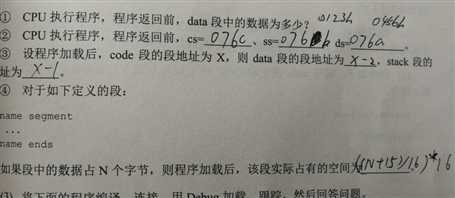 ① CPU 执行程序，程序返回前，data 段中的数据为多少？ 0123h 0456h
② CPU 执行程序，程序返回前，cs= 076c 、ss= 076b ds= 076a 。
③ 设程序加载后，code 段的段地址为 X，则 data 段的段地址为 X-2 ，stack 段的
址为 X-1 。
④ 对于如下定义的段：
name segment
...
name ends
如果段中的数据占 N 个字节，则程序加载后，该段实际占有的空间为 ((N+15)/16)*16
(3) 将下面的程序编译、连接，用 Debug 加载、跟踪，然后回答问题。